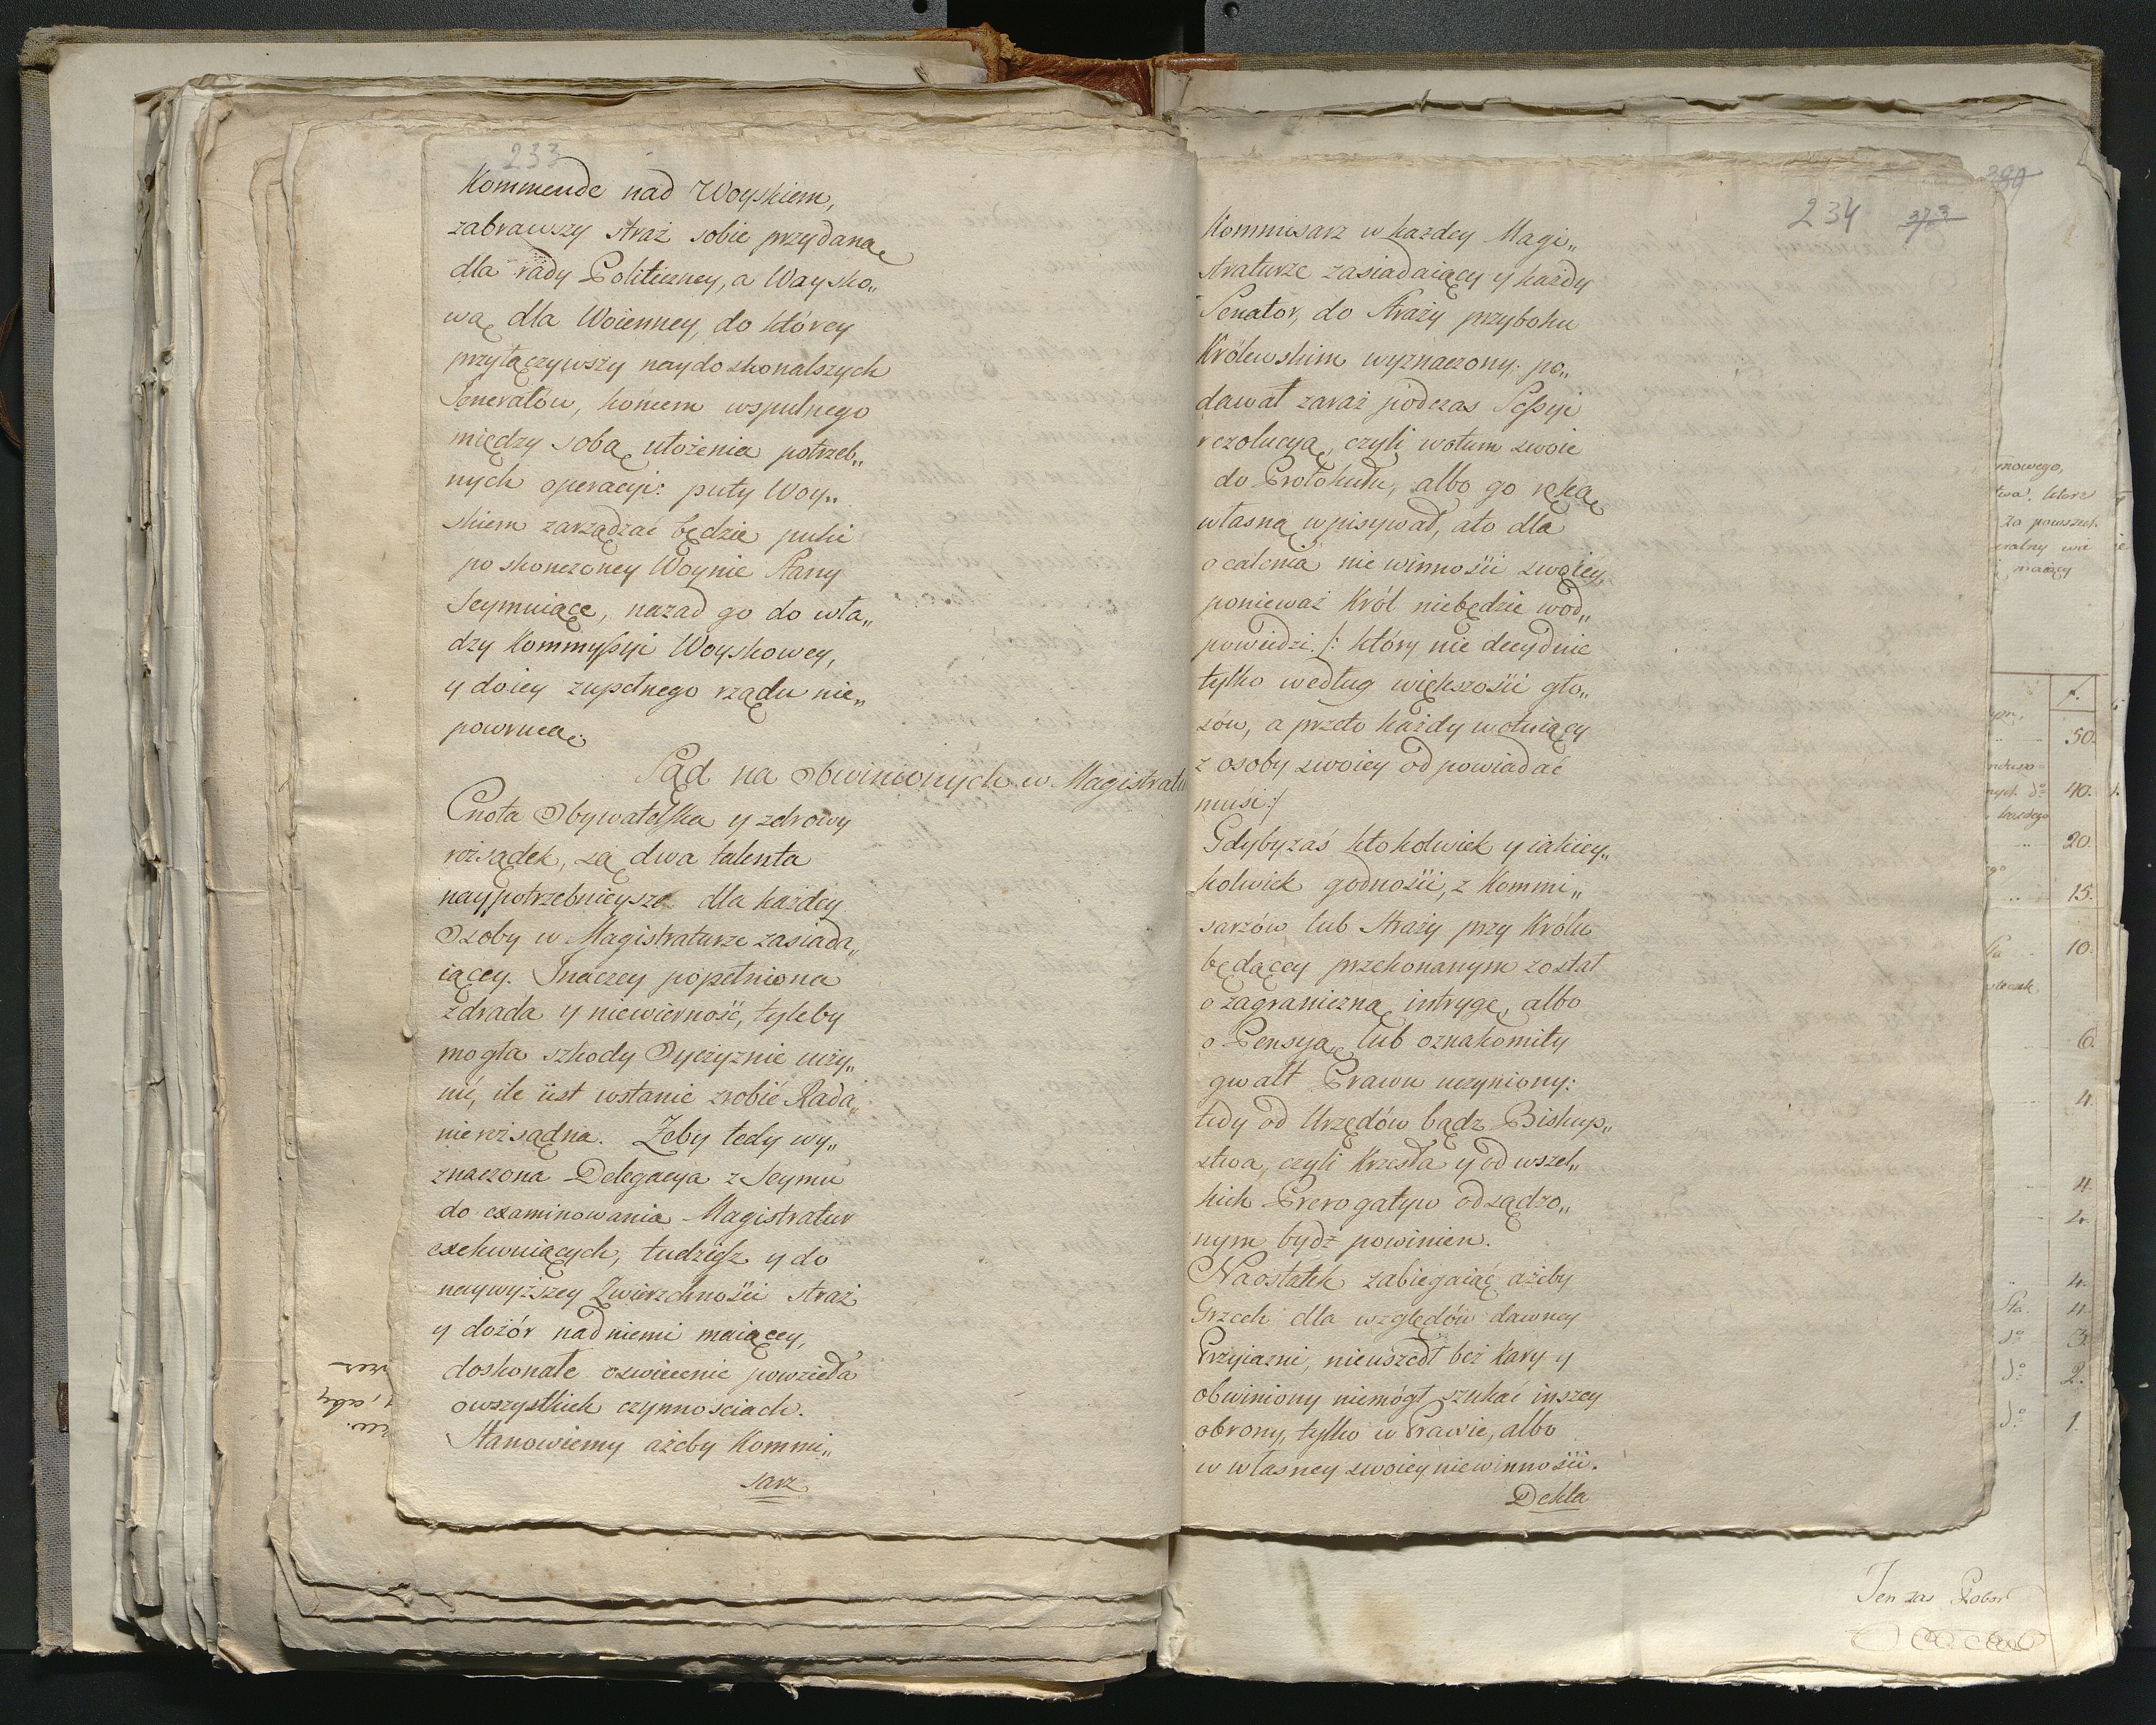 233
Kommende nad Woyskiem,
zabrawszy straż sobie przydaną
dla rady Politiczney, a Waysko„
wą dla Woienney, do którey
przyłączywszy naydoskonalszych
Jenerałów, końcem wspulnego
między sobą ułożenia potrzeb„
nych operacyi: puty Woy„
skiem zarządzać będzie puki
po skonczoney Woynie Stany
Seymuiące, nazad go do wła„
dzy Kommyssyi Woyskowey,
y doiey zupełnego rządu nie„
powrucą.
Sąd na Obwinionych w Magistratu
Cnota Obywatelska y zdrowy
rozsądek, są dwa talenta
naypotrzebnieysze dla każdey
Osoby w Magistraturze zasiada„
iącey. Inaczey popełniona
zdrada y niewierność, tyleby
mogła szkody Oyczyznie uczy„
nić, ile iest wstanie zrobić Rada
nierozsądna. Żeby tedy wy„
znaczona Delegacya z Seymu
do examinowania Magistratur
exekwuiących, tudziesz y do
naywyższey Zwierzchnośii straż
y dozór nad niemi maiącey,
doskonałe oswiecenie powzieła
owszystkich czynnościach.
Stanowiemy ażeby Kommi„
sarz
234 373
Kommisarz w każdey Magi„
straturze zasiadaiący y każdy
Senator, do Straży przyboku
Królewskim wyznaczony: po„
dawał zaraz podczas Sessyi
rezolucyą, czyli wotum swoie
do Protokułu, albo go ręką
własną wpisywał, ato dla
ocalenia niewinnośii swoiey,
ponieważ Król niebędzie wod„
powiedzi. /: który nie decyduie
tylko według większośii gło„
sów, a przeto każdy wotuiący
z osoby swoiey odpowiadać
musi :/
Gdybyzaś ktokolwiek y iakiey„
kolwiek godnośii, z Kommi„
sarzów lub Straży przy Królu
będącey przekonanym został
o zagraniczną intrygę, albo
o Pensyą, lub oznakomity
gwałt Prawu uczyniony:
tedy od Urzędów bądz Biskup„
stwa, czyli Krzesła y od wszel„
kich Prerogatyw odsądzo„
nym bydź powinien.
Naostatek zabiegaiąc ażeby
Grzech dla względów dawney
Przyiazni, nieuszedł beż kary y
obwiniony niemógł szukać inszey
obrony, tylko w Prawie, albo
w własney swoiey niewinnośii.
Dekla
mowego,
ktore
za powszech
f.
50.
40.
20.
15.
10.
6.
4.
4.
2.
4.
4.
3
2.
1.
Ten zas